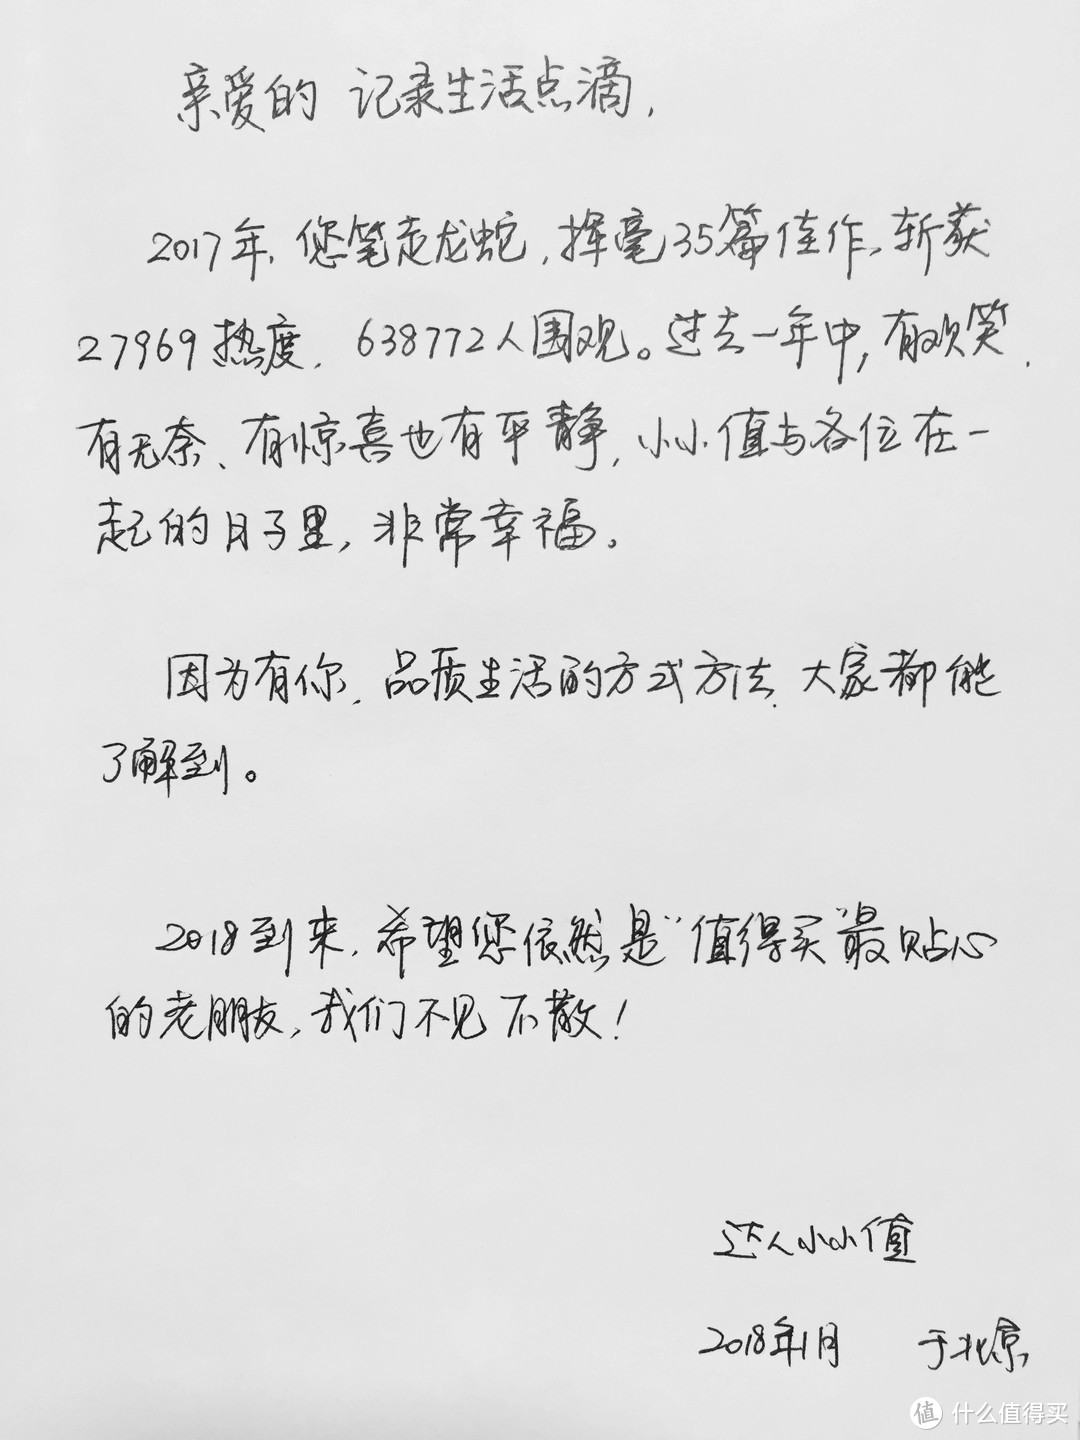 亲爱的 记录生活点滴，
2017年，您笔走龙蛇，挥毫35篇佳作，斩获
27969热度，638772人围观。过去一年中，有欢笑、
有无奈、有惊喜也有平静，小小值与各位在一
起的日子里，非常幸福。
因为有你，品质生活的方式方法，大家都能
了解到。
2018到来，希望您依然是“值得买”最贴心
的老朋友，我们不见不散！
达人小小值
2018年1月 于北京
值 什么值得买